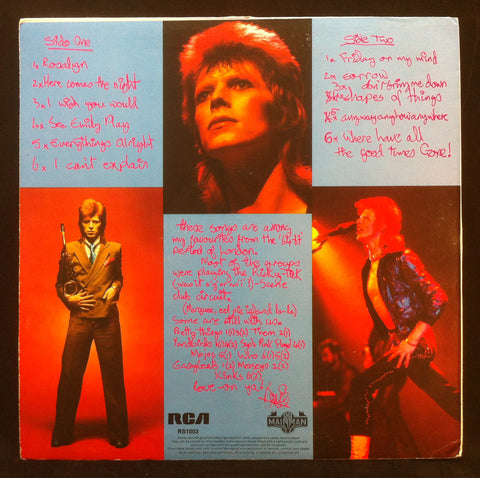 Side One
1x Rosalyn
2x Here comes the night
3x I wish you would
4x See Emily Play
5x Everythings Alright
6x I can't explain
Side Two
1x Friday on my mind
2x sorrow
3x) don't bring me down
shapes of things
anyway anyhow anywhere
6x Where have all
the good times Gone!
These songs are among
my favourites from the '64-67
period of London.
Most of the groups
were playing the Ricky-Tick
(was it a 'y' or an 'i'?)-Scene
club circuit.
(Marquee, eel pie island la-la)
Some are still with us.
Pretty Things 1(1)3(2) Them 2(1)
Yardbirds 3(1)4(2) Syd's Pink Floyd 4(1)
Mojos 5(1) Who 6(1)5(2)
Easybeats 1(2) Merseys 2(2)
Kinks 6(2)
love-on ya!
RCA
RS1003
MAINMAN